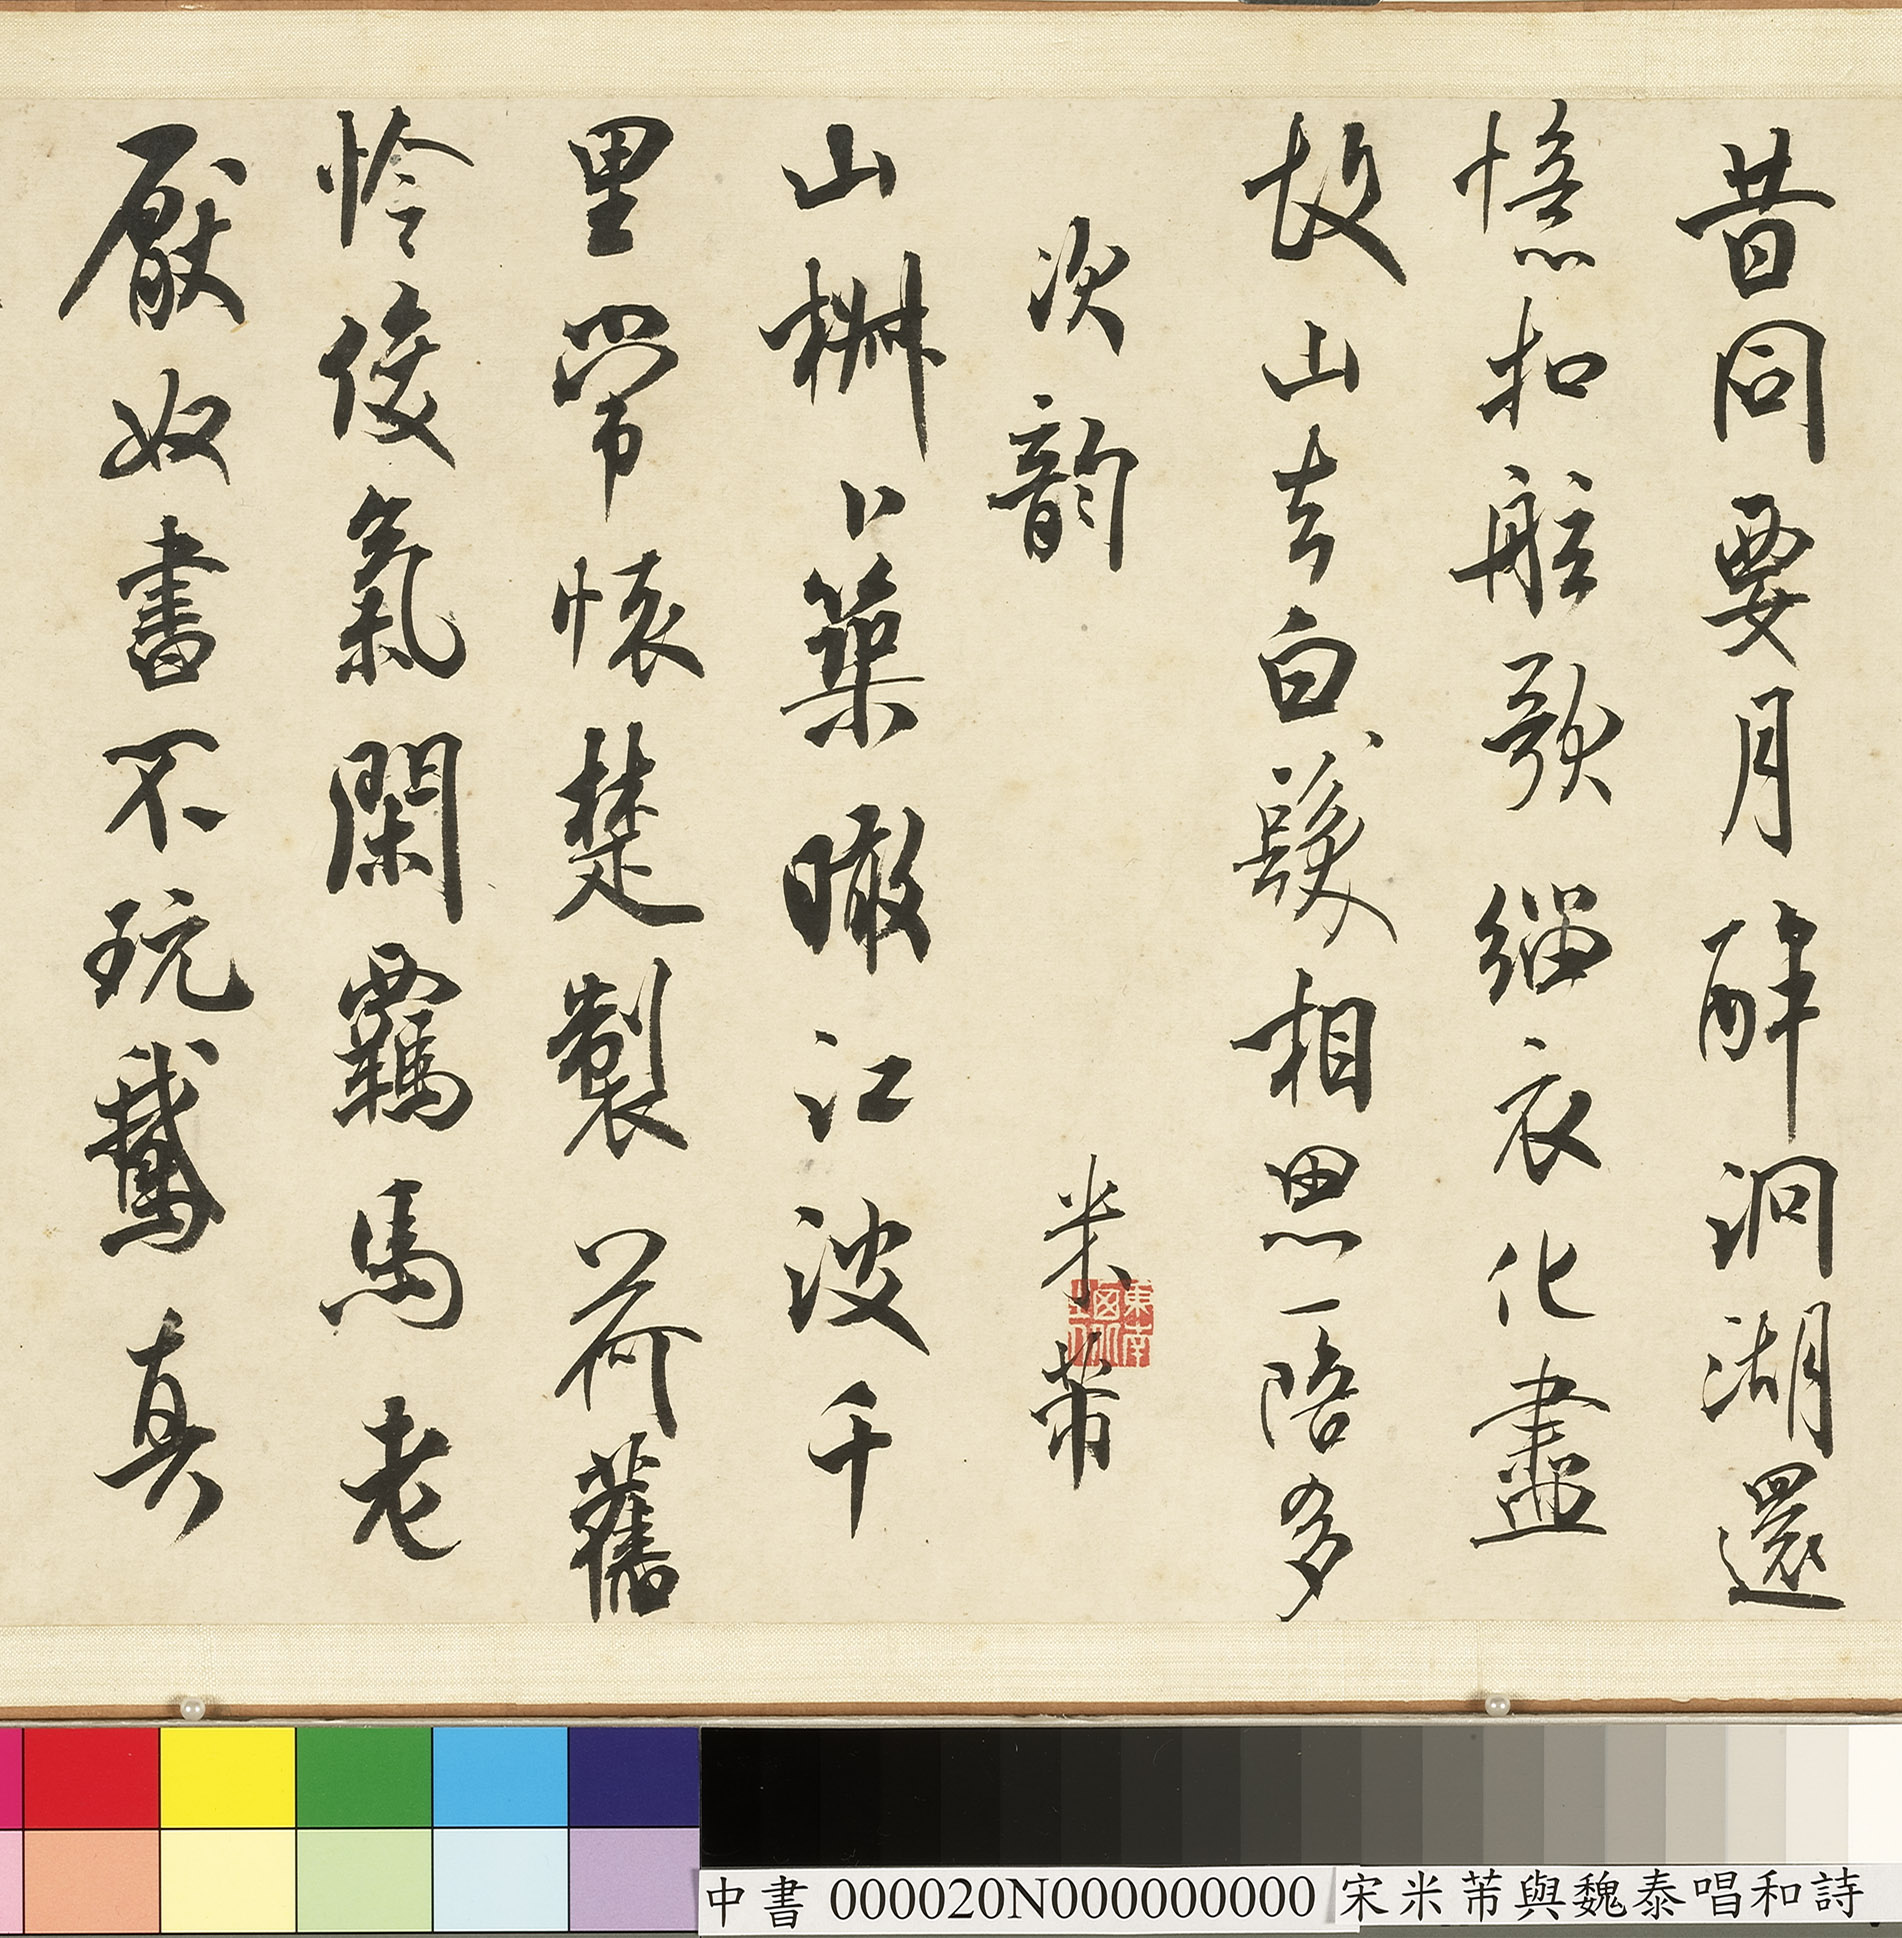 昔同要月醉洞湖還
憶扣舷歌緇衣化盡
故山去白髮相思一陪多
次韵 米芾
山椒卜築瞰江波千
里常懷楚製荷舊
怜俊氣閑羈馬老
厭奴書不玩鵝真
中書 000020N000000000 宋米芾與魏泰唱和詩